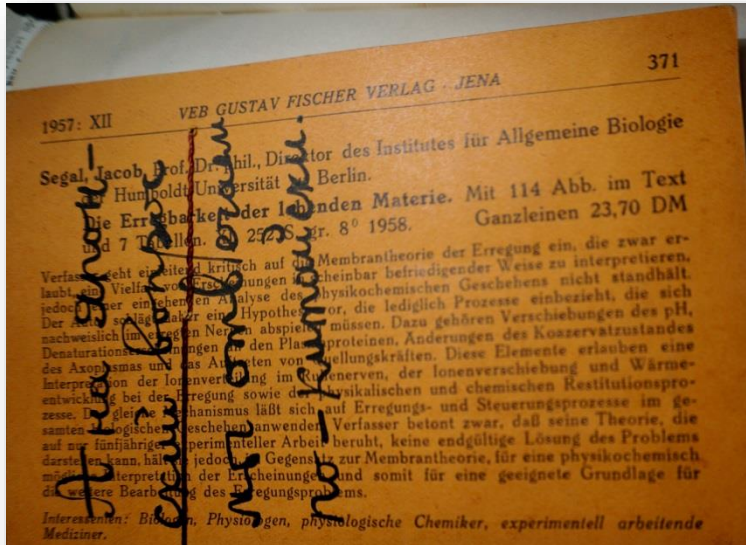 1957: XII VEB GUSTAV FISCHER VERLAG · JENA 371
Segal, Jacob, Prof. Dr. phil., Direktor des Institutes für Allgemeine Biologie
der Humboldt-Universität Berlin.
Die Erregbarkeit der lebenden Materie. Mit 114 Abb. im Text
und 7 Tabellen. 252 S. gr. 8° 1958. Ganzleinen 23,70 DM
Verfasser geht einleitend kritisch auf die Membrantheorie der Erregung ein, die zwar er-
laubt, eine Vielfalt von Erscheinungen in scheinbar befriedigender Weise zu interpretieren,
jedoch einer eingehenden Analyse des physikochemischen Geschehens nicht standhält.
Der Autor schlägt daher eine Hypothese vor, die lediglich Prozesse einbezieht, die sich
nachweislich im erregten Nerven abspielen müssen. Dazu gehören Verschiebungen des pH,
Denaturationserscheinungen an den Plasmaproteinen, Änderungen des Koazervatzustandes
des Axoplasmas und das Auftreten von Quellungskräften. Diese Elemente erlauben eine
Interpretation der Ionenverteilung im Ruhenerven, der Ionenverschiebung und Wärme-
entwicklung bei der Erregung sowie der physikalischen und chemischen Restitutionspro-
zesse. Der gleiche Mechanismus läßt sich auf Erregungs- und Steuerungsprozesse im ge-
samten biologischen Geschehen anwenden. Verfasser betont zwar, daß seine Theorie, die
auf nur fünfjähriger experimenteller Arbeit beruht, keine endgültige Lösung des Problems
darstellen kann, hält sie jedoch im Gegensatz zur Membrantheorie, für eine physikochemisch
mögliche Interpretation der Erscheinungen und somit für eine geeignete Grundlage für
die weitere Bearbeitung des Erregungsproblems.
Interessenten: Biologen, Physiologen, physiologische Chemiker, experimentell arbeitende
Mediziner.